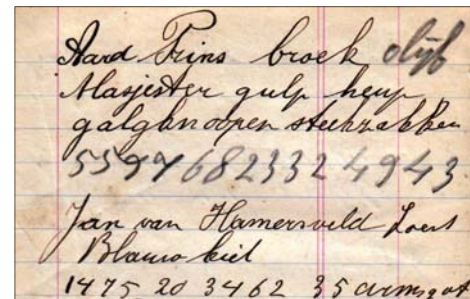 Aard Prins broek olijf
Masjester gulp heup
galgknoopen steekzakken
5597682332 4943
Jan van Hamersveld Zoest
Blauw kiel
1475 20 3462 35 armsgat